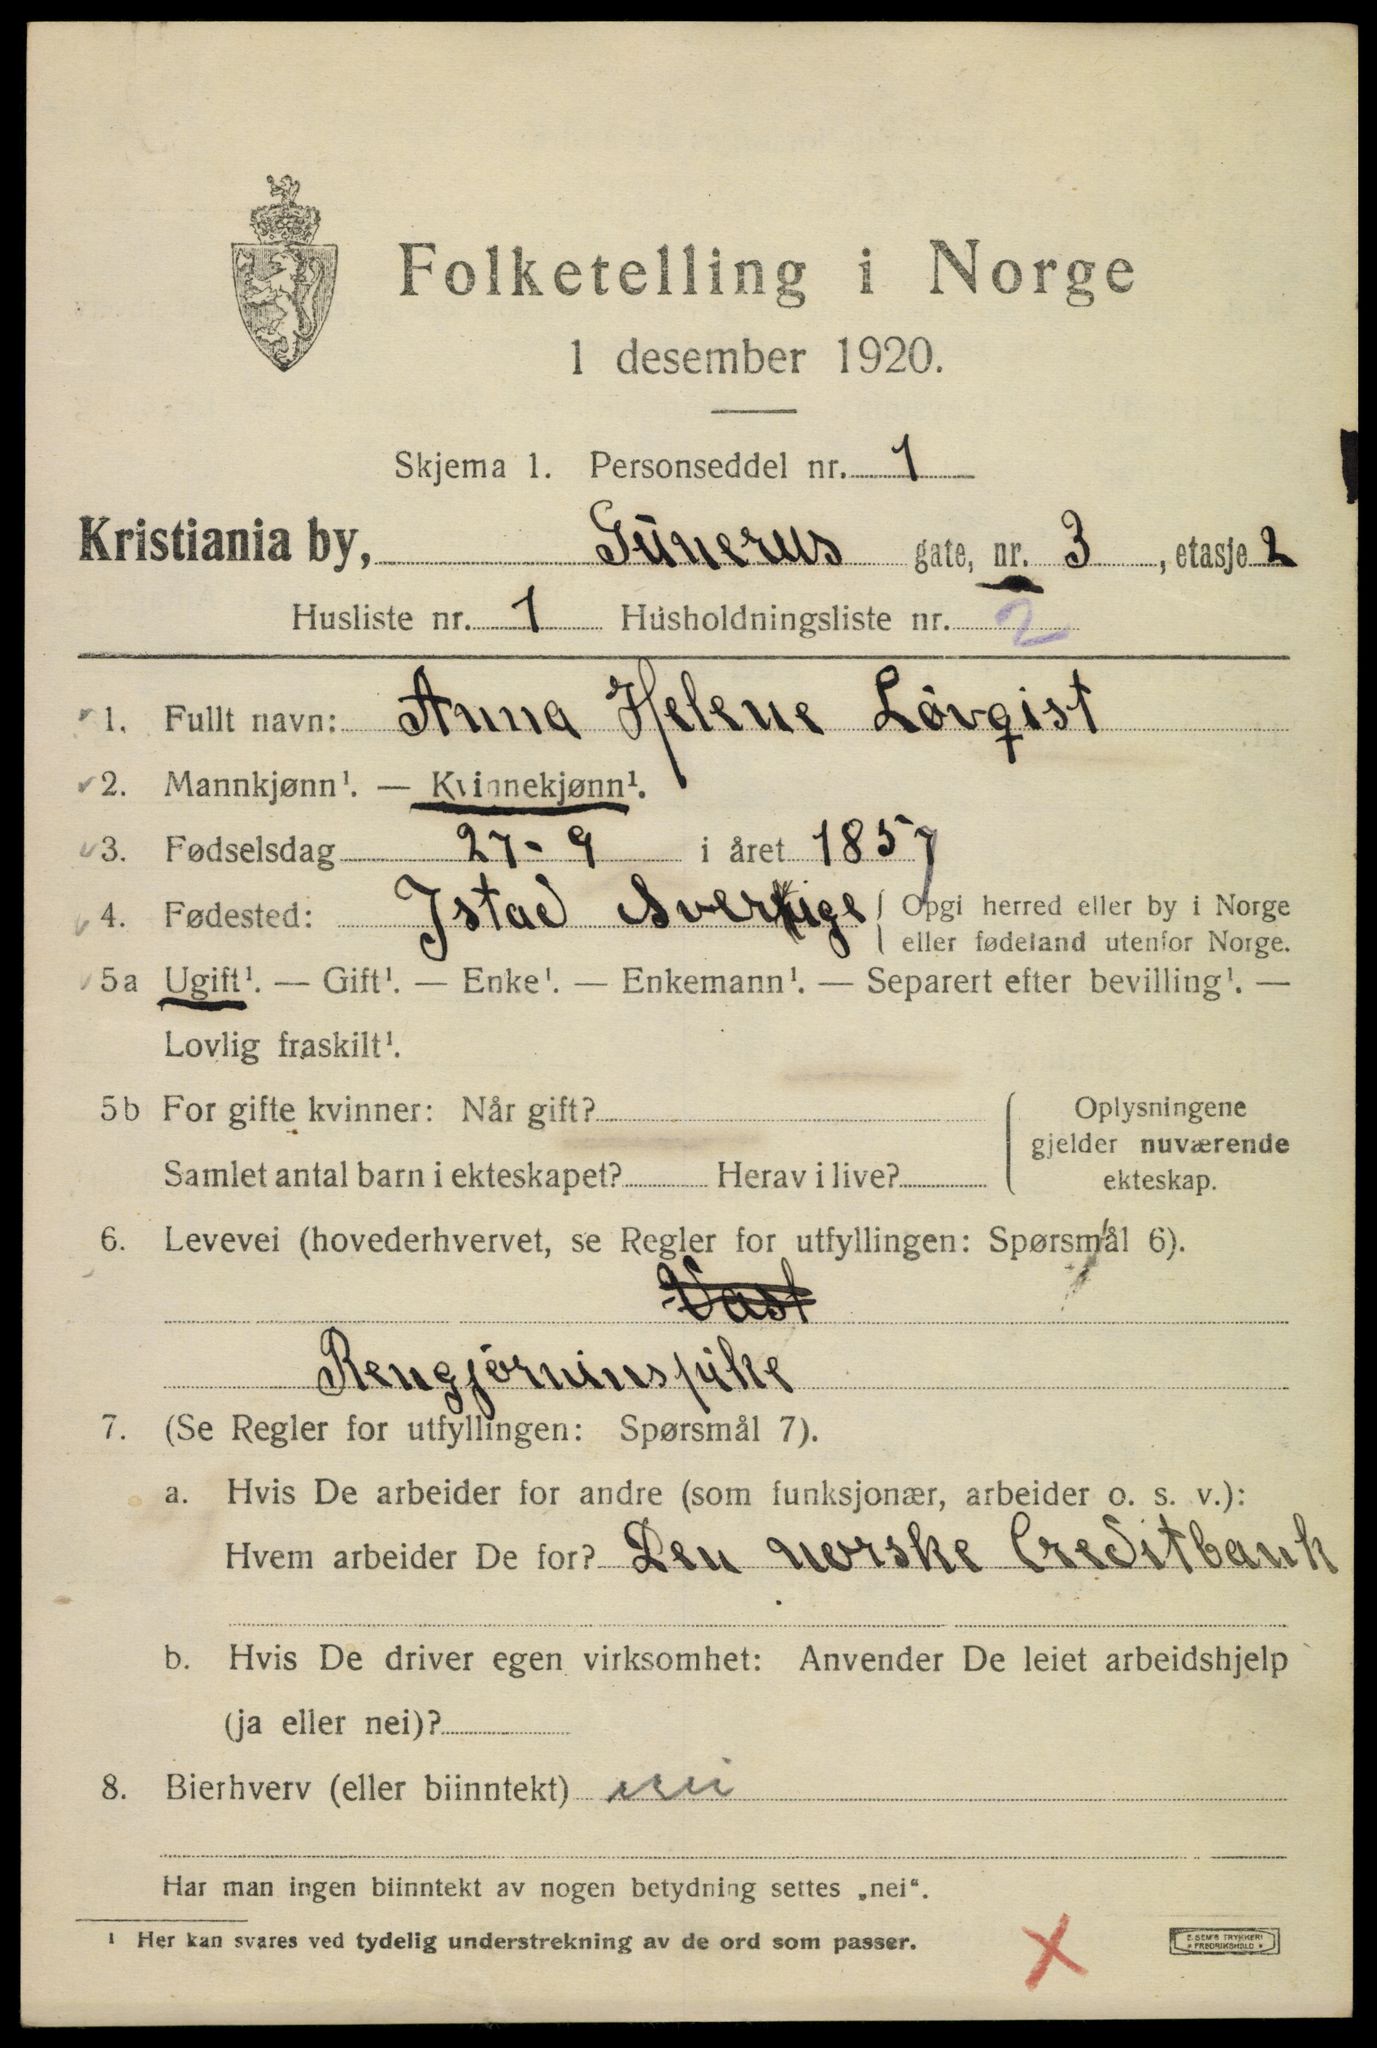 Folketelling i Norge
1 desember 1920.
Skjema 1. Personseddel nr. 1
Kristiania by, Günerus gate, nr. 3, etasje 2
Husliste nr. 1 Husholdningsliste nr. 2
1. Fullt navn: Anna Helene Lövqist
2. Mannkjønn¹. — Kvinnekjønn¹.
3. Fødselsdag 27-9 i året 1857
4. Fødested: Istad Sverige { Opgi herred eller by i Norge
eller fødeland utenfor Norge.
5a Ugift¹. — Gift¹. — Enke¹. — Enkemann¹. — Separert efter bevilling¹. —
Lovlig fraskilt¹.
5b For gifte kvinner: Når gift? { Oplysningene
gjelder nuværende
Samlet antal barn i ekteskapet? Herav i live? ekteskap.
6. Levevei (hovederhvervet, se Regler for utfyllingen: Spørsmål 6).
Vast
Rengjörninspike
7. (Se Regler for utfyllingen: Spørsmål 7).
a. Hvis De arbeider for andre (som funksjonær, arbeider o. s. v.):
Hvem arbeider De for? Den norske Creditbank
b. Hvis De driver egen virksomhet: Anvender De leiet arbeidshjelp
(ja eller nei)?
8. Bierhverv (eller biinntekt) nei
Har man ingen biinntekt av nogen betydning settes „nei“.
¹ Her kan svares ved tydelig understrekning av de ord som passer.
E. SEM'S TRYKKERI
FREDRIKSHALD